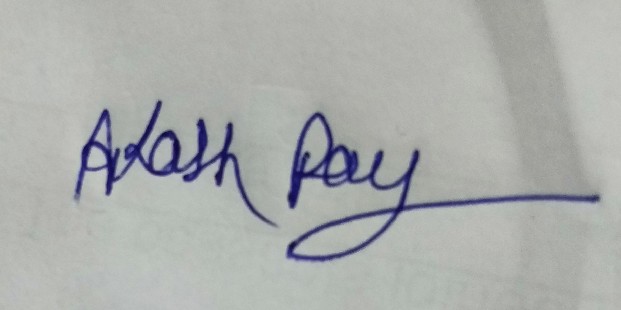 Akash Ray